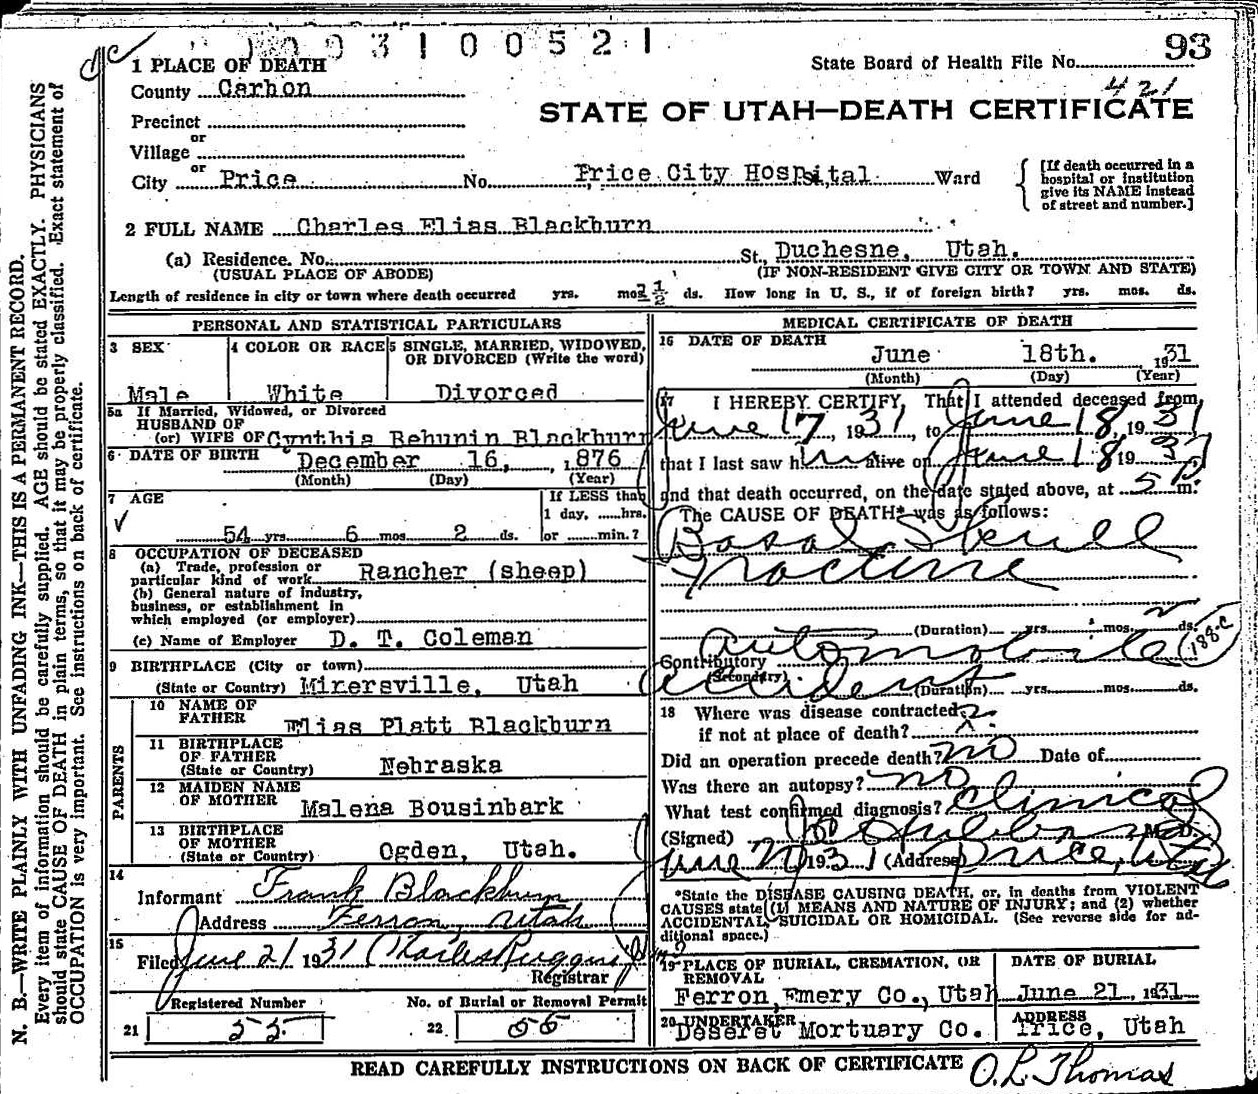 003100521
93
1 PLACE OF DEATH
State Board of Health File No.
County Carbon
421
STATE OF UTAH—DEATH CERTIFICATE
Precinct
or
Village
or
City Price No. Price City Hospital Ward
[If death occurred in a
hospital or institution
give its NAME instead
of street and number.]
2 FULL NAME Charles Elias Blackburn
(a) Residence. No. St. Duchesne, Utah.
(USUAL PLACE OF ABODE) (IF NON-RESIDENT GIVE CITY OR TOWN AND STATE)
Length of residence in city or town where death occurred yrs. mos. 1/2 ds. How long in U. S., if of foreign birth? yrs. mos. ds.
PERSONAL AND STATISTICAL PARTICULARS
3 SEX 4 COLOR OR RACE 5 SINGLE, MARRIED, WIDOWED,
OR DIVORCED (Write the word)
Male White Divorced
5a If Married, Widowed, or Divorced
HUSBAND OF
(or) WIFE OF Cynthia Behunin Blackburn
6 DATE OF BIRTH December 16, 1876
(Month) (Day) (Year)
7 AGE If LESS than
1 day, ......hrs.
54 yrs. 6 mos. 2 ds. or ......min.?
8 OCCUPATION OF DECEASED
(a) Trade, profession or
particular kind of work Rancher (sheep)
(b) General nature of industry,
business, or establishment in
which employed (or employer)
(c) Name of Employer D. T. Coleman
9 BIRTHPLACE (City or town)
(State or Country) Minersville, Utah
PARENTS
10 NAME OF
FATHER Elias Platt Blackburn
11 BIRTHPLACE
OF FATHER
(State or Country) Nebraska
12 MAIDEN NAME
OF MOTHER Malena Bousinbark
13 BIRTHPLACE
OF MOTHER
(State or Country) Ogden, Utah.
14
Informant Frank Blackburn
Address Ferron, Utah
15
Filed June 21 1931 Charles Ruggeri
Registrar
Registered Number No. of Burial or Removal Permit
21 55 22 56
MEDICAL CERTIFICATE OF DEATH
16 DATE OF DEATH
June 18th. 1931
(Month) (Day) (Year)
17 I HEREBY CERTIFY, That I attended deceased from
June 17, 1931, to June 18, 1931
that I last saw him alive on June 18 1931
and that death occurred, on the date stated above, at 5 P m.
The CAUSE OF DEATH* was as follows:
Basal Skull
Fracture
(Duration) yrs. mos. ds.
Contributory Automobile
188-c
(Secondary)
accident (Duration) yrs. mos. ds.
18 Where was disease contracted
if not at place of death?
Did an operation precede death? no Date of
Was there an autopsy? no
What test confirmed diagnosis? Clinical
(Signed) M. D.
June 1931 (Address) Price, Utah
*State the DISEASE CAUSING DEATH, or, in deaths from VIOLENT
CAUSES state (1) MEANS AND NATURE OF INJURY; and (2) whether
ACCIDENTAL, SUICIDAL OR HOMICIDAL. (See reverse side for ad-
ditional space.)
19 PLACE OF BURIAL, CREMATION, OR
REMOVAL DATE OF BURIAL
Ferron, Emery Co., Utah June 21, 1931
20 UNDERTAKER ADDRESS
Deseret Mortuary Co. Price, Utah
READ CAREFULLY INSTRUCTIONS ON BACK OF CERTIFICATE O. L. Thomas
N. B.—WRITE PLAINLY WITH UNFADING INK—THIS IS A PERMANENT RECORD.
Every item of information should be carefully supplied. AGE should be stated EXACTLY. PHYSICIANS
should state CAUSE OF DEATH in plain terms, so that it may be properly classified. Exact statement of
OCCUPATION is very important. See instructions on back of certificate.